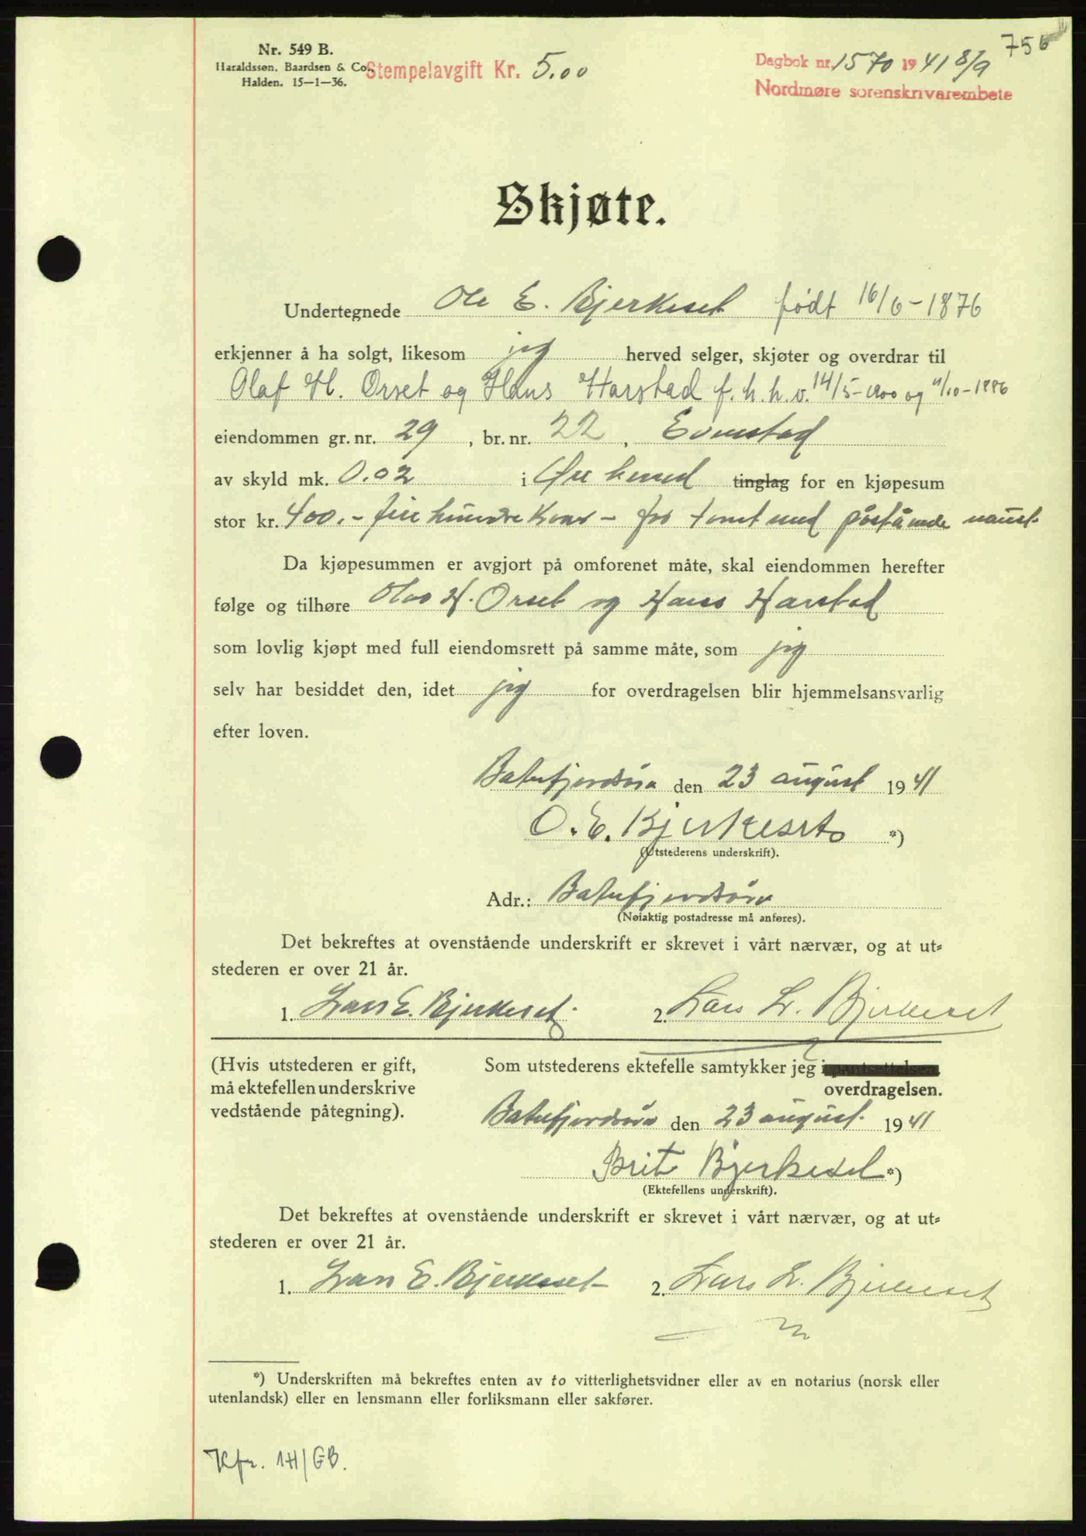 756
Nr. 549 B.
Haraldssøn, Baardsen & Co.
Halden. 15—1—36.
Stempelavgift Kr. 5.00
Dagbok nr. 1570 1941 8/9
Nordmøre sorenskrivarembete
Skjøte.
Undertegnede Ole E. Bjerkeset født 16/6-1876
erkjenner å ha solgt, likesom jeg herved selger, skjøter og overdrar til
Olaf H. Orset og Hans Harstad f. h. h. v. 14/5-1900 og 11/10-1886
eiendommen gr. nr. 29, br. nr. 22,
av skyld mk. 0.02 i Øre herred tinglag for en kjøpesum
stor kr. 400.- fire hundre kroner - for tomt med påstående naust.
Da kjøpesummen er avgjort på omforenet måte, skal eiendommen herefter
følge og tilhøre Olav H. Orset og Hans Harstad
som lovlig kjøpt med full eiendomsrett på samme måte, som jeg
selv har besiddet den, idet jeg for overdragelsen blir hjemmelsansvarlig
efter loven.
Batnfjordsøra den 23 august 1941
O. E. Bjerkeset *)
(Utstederens underskrift).
Adr.: Batnfjordsøra
(Nøiaktig postadresse må anføres).
Det bekreftes at ovenstående underskrift er skrevet i vårt nærvær, og at ut-
stederen er over 21 år.
1. Lars E. Bjerkeset. 2. Lars L. Bjerkeset
(Hvis utstederen er gift, Som utstederens ektefelle samtykker jeg i pantsettelsen
må ektefellen underskrive overdragelsen.
vedstående påtegning). Batnfjordsøra den 23 august 1941
Brit Bjerkeset *)
(Ektefellens underskrift).
Det bekreftes at ovenstående underskrift er skrevet i vårt nærvær, og at ut-
stederen er over 21 år.
1. Lars E. Bjerkeset 2. Lars L. Bjerkeset
*) Underskriften må bekreftes enten av to vitterlighetsvidner eller av en notarius (norsk eller
utenlandsk) eller en lensmann eller forliksmann eller sakfører.
Kfr. 1H/GB.